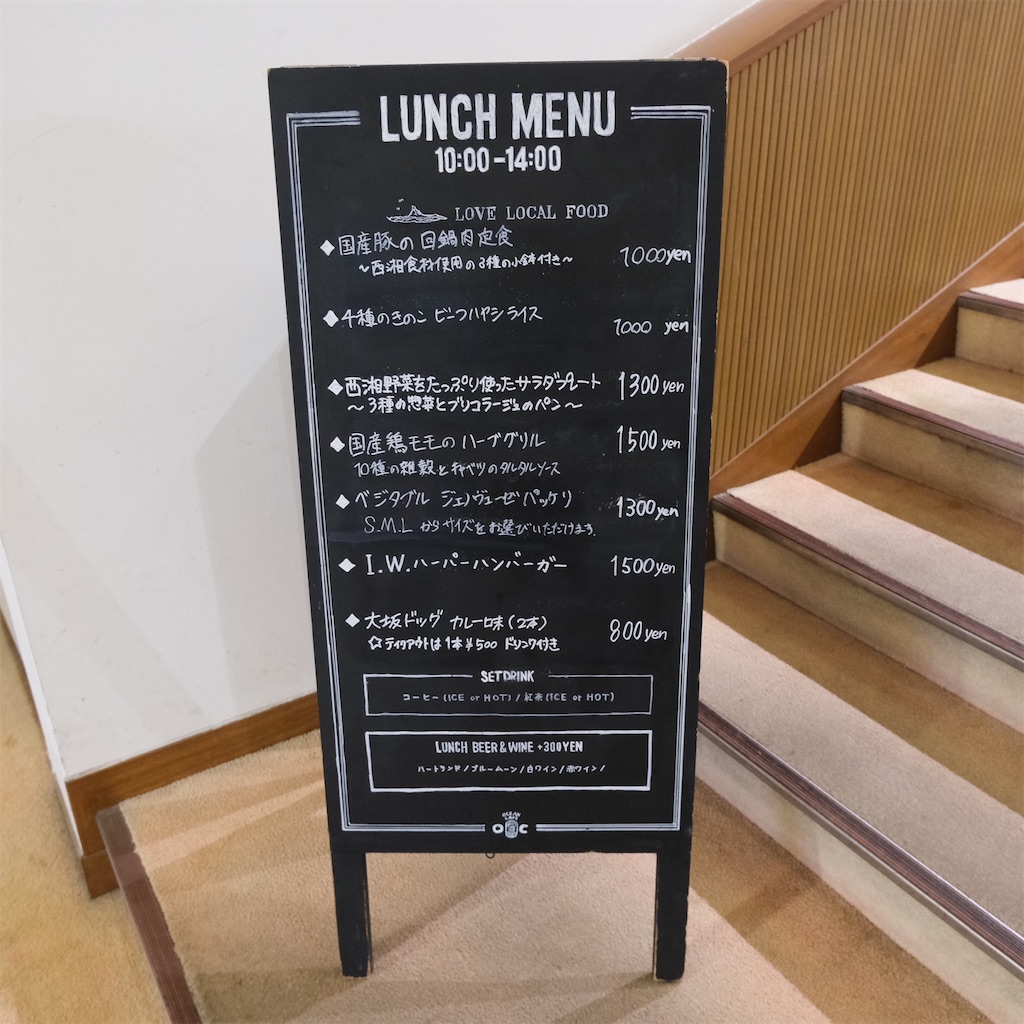 LUNCH MENU
10:00-14:00
LOVE LOCAL FOOD
◆国産豚の回鍋肉定食 1000yen
～西湘食材使用の3種の小鉢付き～
◆4種のきのこ ビーフハヤシライス 1000 yen
◆西湘野菜をたっぷり使ったサラダプレート 1300yen
～3種の惣菜とブリコラージュのパン～
◆国産鶏モモの ハーブグリル 1500 yen
10種の雑穀とキャベツのタルタルソース
◆ベジタブル ジェノヴェーゼ パッケリ 1300yen
S.M.L からサイズをお選びいただけます。
◆I.W.ハーパーハンバーガー 1500yen
◆大坂ドッグ カレー味(2本) 800yen
☆テイクアウトは1本¥500 ドリンク付き
SETDRINK
コーヒー(ICE or HOT) / 紅茶(ICE or HOT)
LUNCH BEER & WINE +300YEN
ハートランド/ブルームーン/白ワイン/赤ワイン/
OC